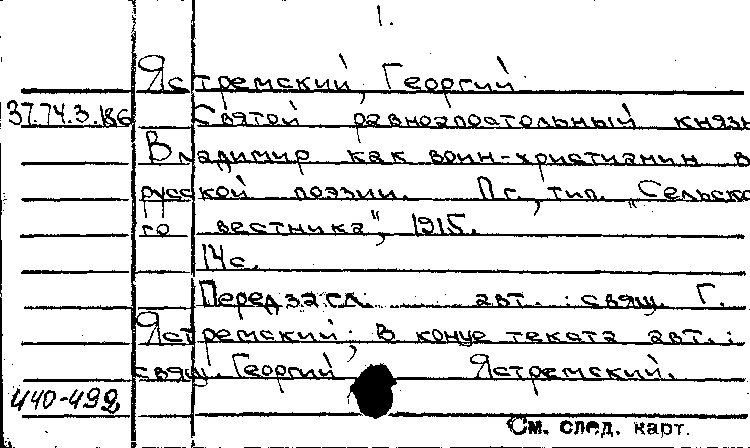 1.
Ястремский, Георгий
37.74.3.186 Святой равноапостольный князь
Владимир как воин-христианин в
русской поэзии. Пг., тип. „Сельско
го вестника", 1915.
14 с.
Перед загл. авт.: свящ. Г.
Ястремский; В конце текста авт.:
свящ. Георгий Ястремский.
440-492
См. след. карт.